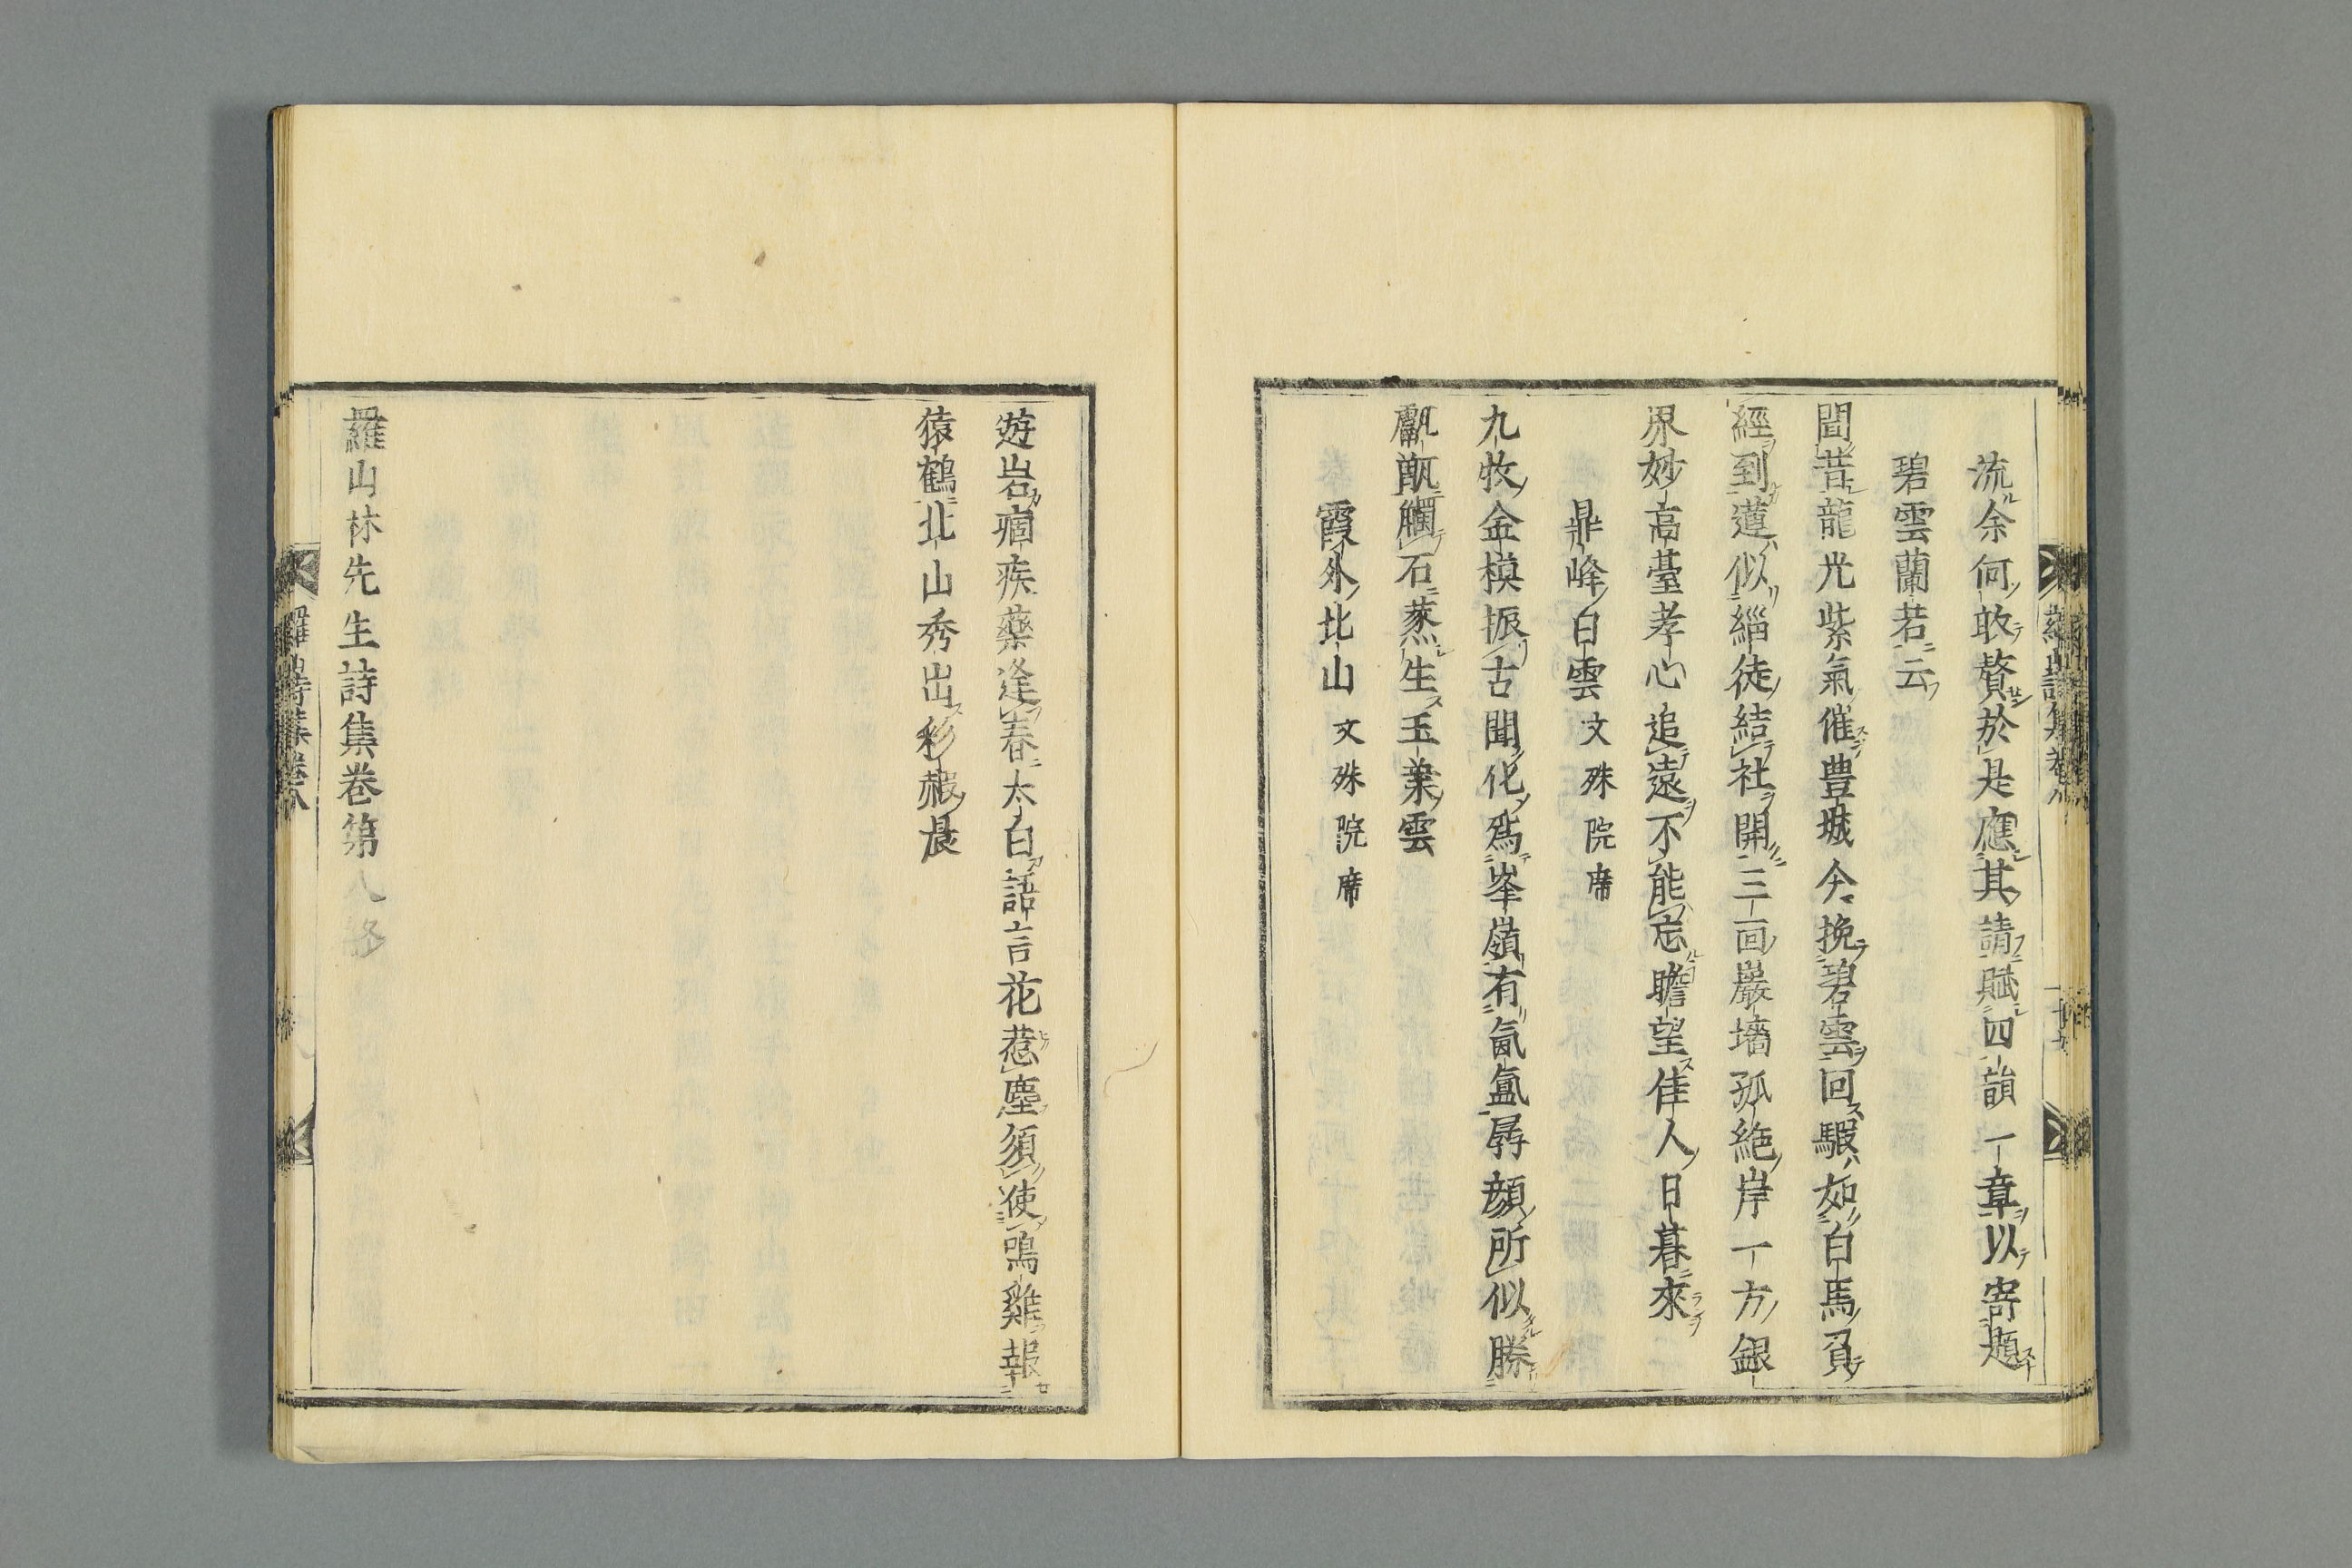 流余何敢贅於是應其請賦四韻一章以寄題
碧雲蘭若云
昔龍光紫氣催豊城今挽碧雲回騢如白馬負
經到蓮似緇徒結社開三面巖墻孤絶岸一方銀
界妙高臺孝心追遠不能忘瞻望佳人日暮來
鼎峰白雲 文殊院席
九牧金模振古聞化爲峯嶺有氤氳孱顔所似勝
甗甑觸石蒸生玉葉雲
霞外北山 文殊院席
遊岩痼疾藥逢春太白語言花惹塵須使鳴雞報
猿鶴北山秀出彩霞晨
羅山林先生詩集卷第八終
羅山詩集卷八